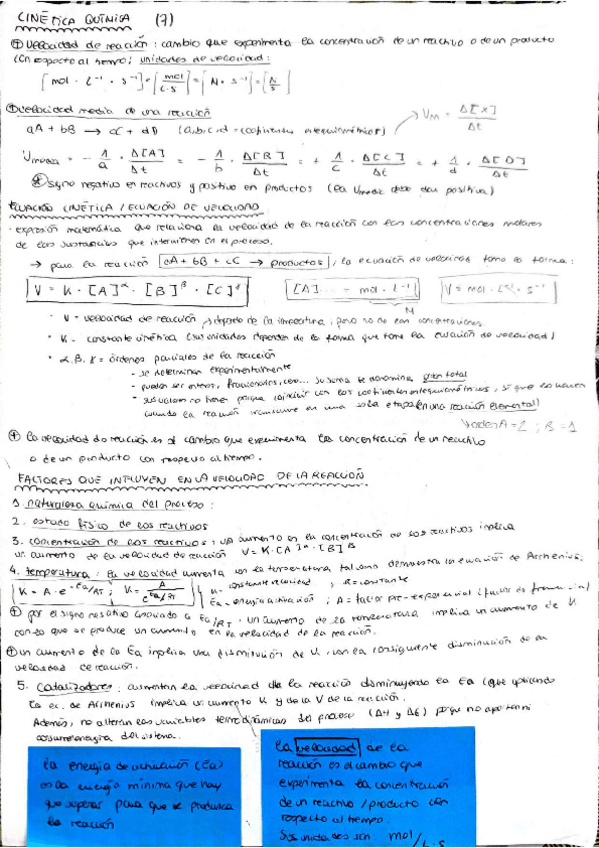 CINÉTICA QUÍMICA (7)
velocidad de reacción: cambio que experimenta la concentración de un reactivo o de un producto
con respecto al tiempo; unidades de velocidad:
[mol · L⁻¹ · s⁻¹] = [mol/L·s] = [M · s⁻¹] = [M/s]
velocidad media de una reacción
aA + bB → cC + dD (a,b,c,d = coeficientes estequiométricos) Vm = Δ[X]/Δt
Vmedia = - 1/a · Δ[A]/Δt = - 1/b · Δ[B]/Δt = + 1/c · Δ[C]/Δt = + 1/d · Δ[D]/Δt
signo negativo en reactivos y positivo en productos (la Vmedia debe dar positiva)
ECUACIÓN CINÉTICA / ECUACIÓN DE VELOCIDAD
· expresión matemática que relaciona la velocidad de la reacción con las concentraciones molares
de las sustancias que intervienen en el proceso.
→ para la reacción aA + bB + cC → productos, la ecuación de velocidad toma la forma:
V = K · [A]^α · [B]^β · [C]^γ [A]... = mol · L⁻¹ V = mol · L⁻¹ · s⁻¹
M
· V = velocidad de reacción → depende de la temperatura, pero no de las concentraciones
· K = constante cinética (sus unidades dependen de la forma que tome la ecuación de velocidad)
· α, β, γ = órdenes parciales de la reacción
- se determinan experimentalmente
- pueden ser enteros, fraccionarios, cero... su suma se denomina orden total
- sus valores no tienen porque coincidir con los coeficientes estequiométricos, si que lo hacen
cuando la reacción transcurre en una sola etapa (en una reacción elemental)
orden A = 2; B = 1
la velocidad de reacción es el cambio que experimenta la concentración de un reactivo
o de un producto con respecto al tiempo.
FACTORES QUE INFLUYEN EN LA VELOCIDAD DE LA REACCIÓN
1. naturaleza química del proceso:
2. estado físico de los reactivos
3. concentración de los reactivos: un aumento en la concentración de los reactivos implica
un aumento de la velocidad de reacción V = K·[A]^α·[B]^β
4. temperatura: la velocidad aumenta con la temperatura tal como demuestra la ecuación de Arrhenius:
K = A · e^(-Ea/RT); K = A/e^(Ea/RT) K = constante velocidad; R = constante
Ea = energía activación; A = factor pre-exponencial
por el signo negativo asociado a Ea/RT, un aumento de la temperatura implica un aumento de K
con lo que se produce un aumento en la velocidad de la reacción.
un aumento de la Ea implica una disminución de K, con la consiguiente disminución de la
velocidad de reacción.
5. catalizadores: aumentan la velocidad de la reacción disminuyendo la Ea (que aplicando
la ec. de Arrhenius implica un aumento K y de la V de la reacción.
Además, no alteran las variables termodinámicas del proceso (ΔH y ΔG) porque no aportan ni
consumen energía del sistema.
la energía de activación (Ea)
es la energía mínima que hay
que superar para que se produzca
la reacción
la velocidad de la
reacción es el cambio que
experimenta la concentración
de un reactivo/producto con
respecto al tiempo.
Sus unidades son mol/L·s